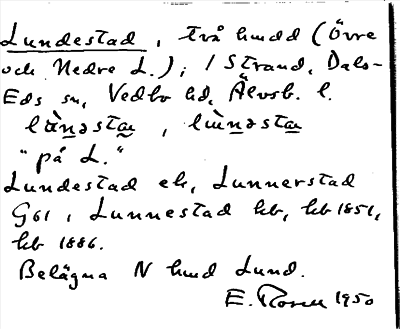 Lundestad, två hmdd (Övre
och Nedre L.); i Strand, Dals-
Eds sn, Vedbo hd, Älvsb. l.
"på L."
Lundestad ek, Lunnerstad
G61, Lunnestad kb, kb 1851,
kb 1886.
Belägna N hmd Lund.
E. Rosen 1950